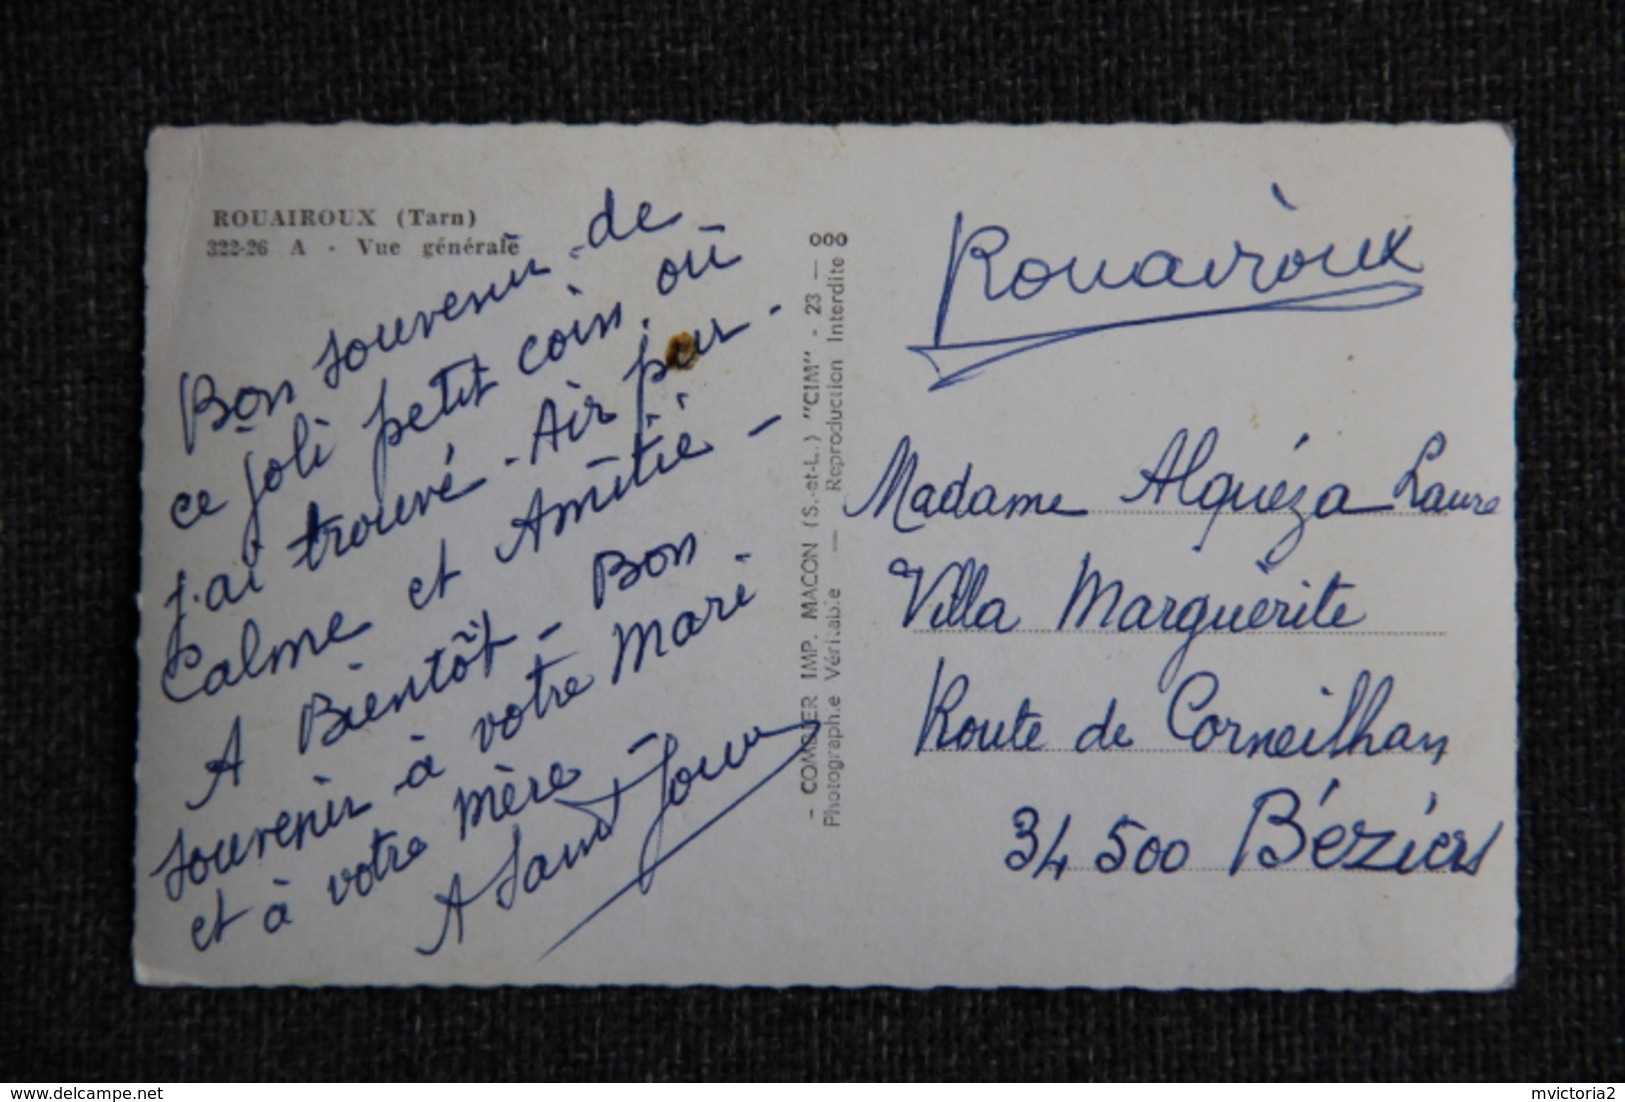 ROUAIROUX (Tarn)
322-26 A - Vue générale
Bon souvenir de
ce joli petit coin. où
j'ai trouvé - Air pur -
Calme et Amitié -
A Bientôt - Bon
souvenir à votre Mari
et à votre Mère -
A
000
- COMBIER IMP. MACON (S.-et-L.) "CIM" - 23 -
Photographie Véritable — Reproduction Interdite
Rouairoux
Madame Alquéza Laure
Villa Marguerite
Route de Corneilhan
34 500 Béziers
delcampe.net
mvictoria2